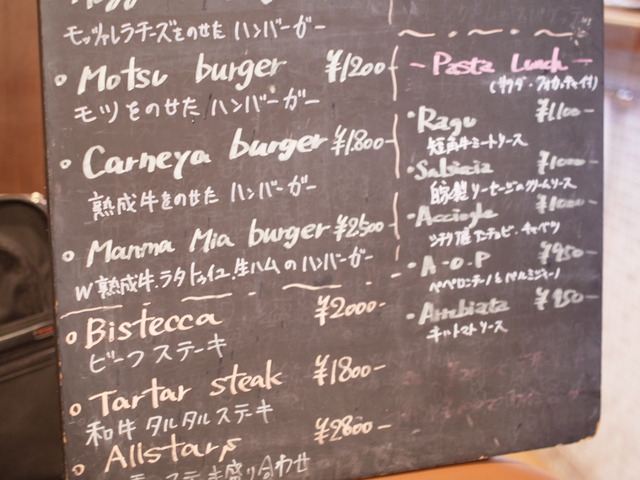 モッツァレラチーズをのせた ハンバーガー
○ Motsu burger ¥1200-
モツをのせた ハンバーガー
○ Carneya burger ¥1.800-
熟成牛をのせた ハンバーガー
○ Manma Mia burger ¥2500-
W熟成牛.ラタトゥイユ.生ハムのハンバーガー
○ Bistecca ¥2000-
ビーフステーキ
○ Tartar steak ¥1800-
和牛 タルタルステーキ
○ Allstars ¥2800-
盛り合わせ
- Pasta Lunch -
(サラダ・フォカッチャ付)
・Ragu ¥1,100-
短角牛ミートソース
・Salsiccia ¥1000-
自家製ソーセージのクリームソース
・Acciughe ¥1000-
シチリア産アンチョビ・キャベツ
・A・O・P ¥950-
ペペロンチーノ & ペルミジャーノ
・Arrabiata ¥950-
辛トマトソース